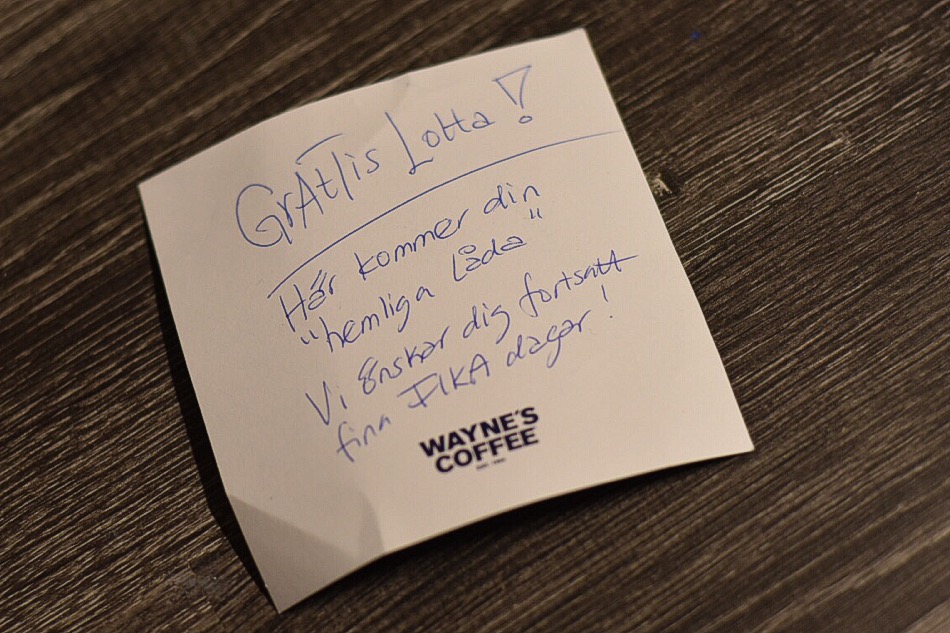 GRATTIS Lotta!
Här kommer din
"hemliga Låda"
Vi önskar dig fortsatt
fina FIKA dagar!
WAYNE'S
COFFEE